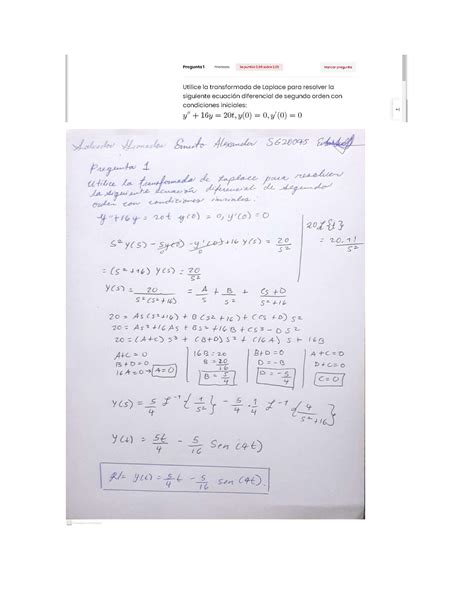 Pregunta 1
Marcar pregunta
Utilice la transformada de Laplace para resolver la
siguiente ecuación diferencial de segundo orden con
condiciones iniciales:
y'' + 16y = 20t, y(0) = 0, y'(0) = 0
Ernesto Alexander SG20075
Pregunta 1
Utilice la transformada de Laplace para resolver
la siguiente ecuación diferencial de segundo
orden con condiciones iniciales.
y''+16y = 20t y(0) = 0, y'(0) = 0
20 L{t}
= 20.1!/s²
s² Y(s) - sy(0) - y'(0) + 16 Y(s) = 20/s²
= (s²+16) Y(s) = 20/s²
Y(s) = 20/s²(s²+16) = A/s + B/s² + Cs+D/s²+16
20 = As(s²+16) + B(s²+16) + (Cs+D)s²
20 = As³+16As + Bs²+16B + Cs³ - Ds²
20 = (A+C)s³ + (B+D)s² + (16A)s + 16B
A+C=0
B+D=0
16A=0 → A=0
16B=20
B=20/16
B=5/4
B+D=0
D=-B
D=-5/4
A+C=0
D+C=0
C=0
Y(s) = 5/4 L⁻¹{1/s²} - 5/4 . 1/4 L⁻¹{4/s²+16}
Y(t) = 5t/4 - 5/16 Sen(4t)
R/= y(t) = 5/4 t - 5/16 sen(4t).